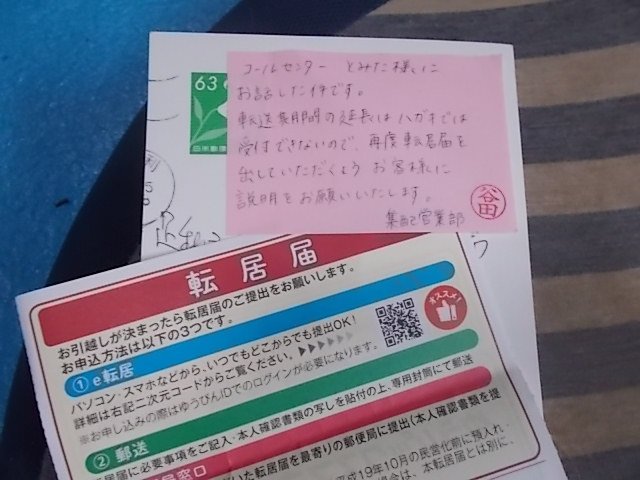 63
日本郵便
コールセンター とみた様に
お話した件です。
転送期間の延長は ハガキでは
受付できないので、再度転居届を
出していただくよう お客様に
説明をお願いいたします。
集配営業部
谷田
転居届
お引越しが決まったら転居届のご提出をお願いします。
お申込方法は以下の3つです。
オススメ!
①e転居
パソコン・スマホなどから、いつでもどこからでも提出OK!
詳細は右記二次元コードからご覧ください。▶▶▶▶▶▶
※お申し込みの際はゆうびんIDでのログインが必要になります。
②郵送
居届に必要事項をご記入・本人確認書類の写しを貼付の上、専用封筒にて郵送
窓口
いた転居届を最寄りの郵便局に提出(本人確認書類を提
平成19年10月の民営化前に預入れ
場合は、本転居届とは別に、